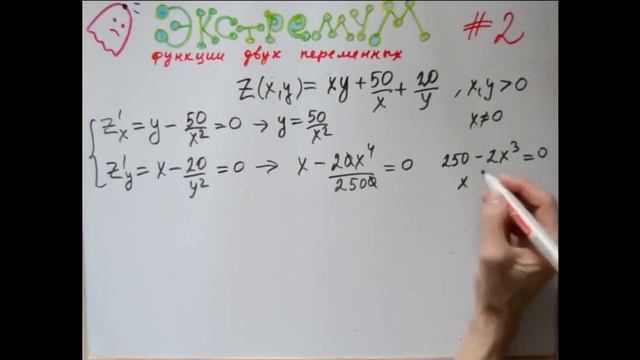 ЭКСТРЕМУМ #2
функции двух переменных
z(x,y) = xy + 50/x + 20/y , x,y > 0
z'x = y - 50/x² = 0 → y = 50/x²
x ≠ 0
z'y = x - 20/y² = 0 → x - 20x⁴/2500 = 0
250 - 2x³ = 0
x